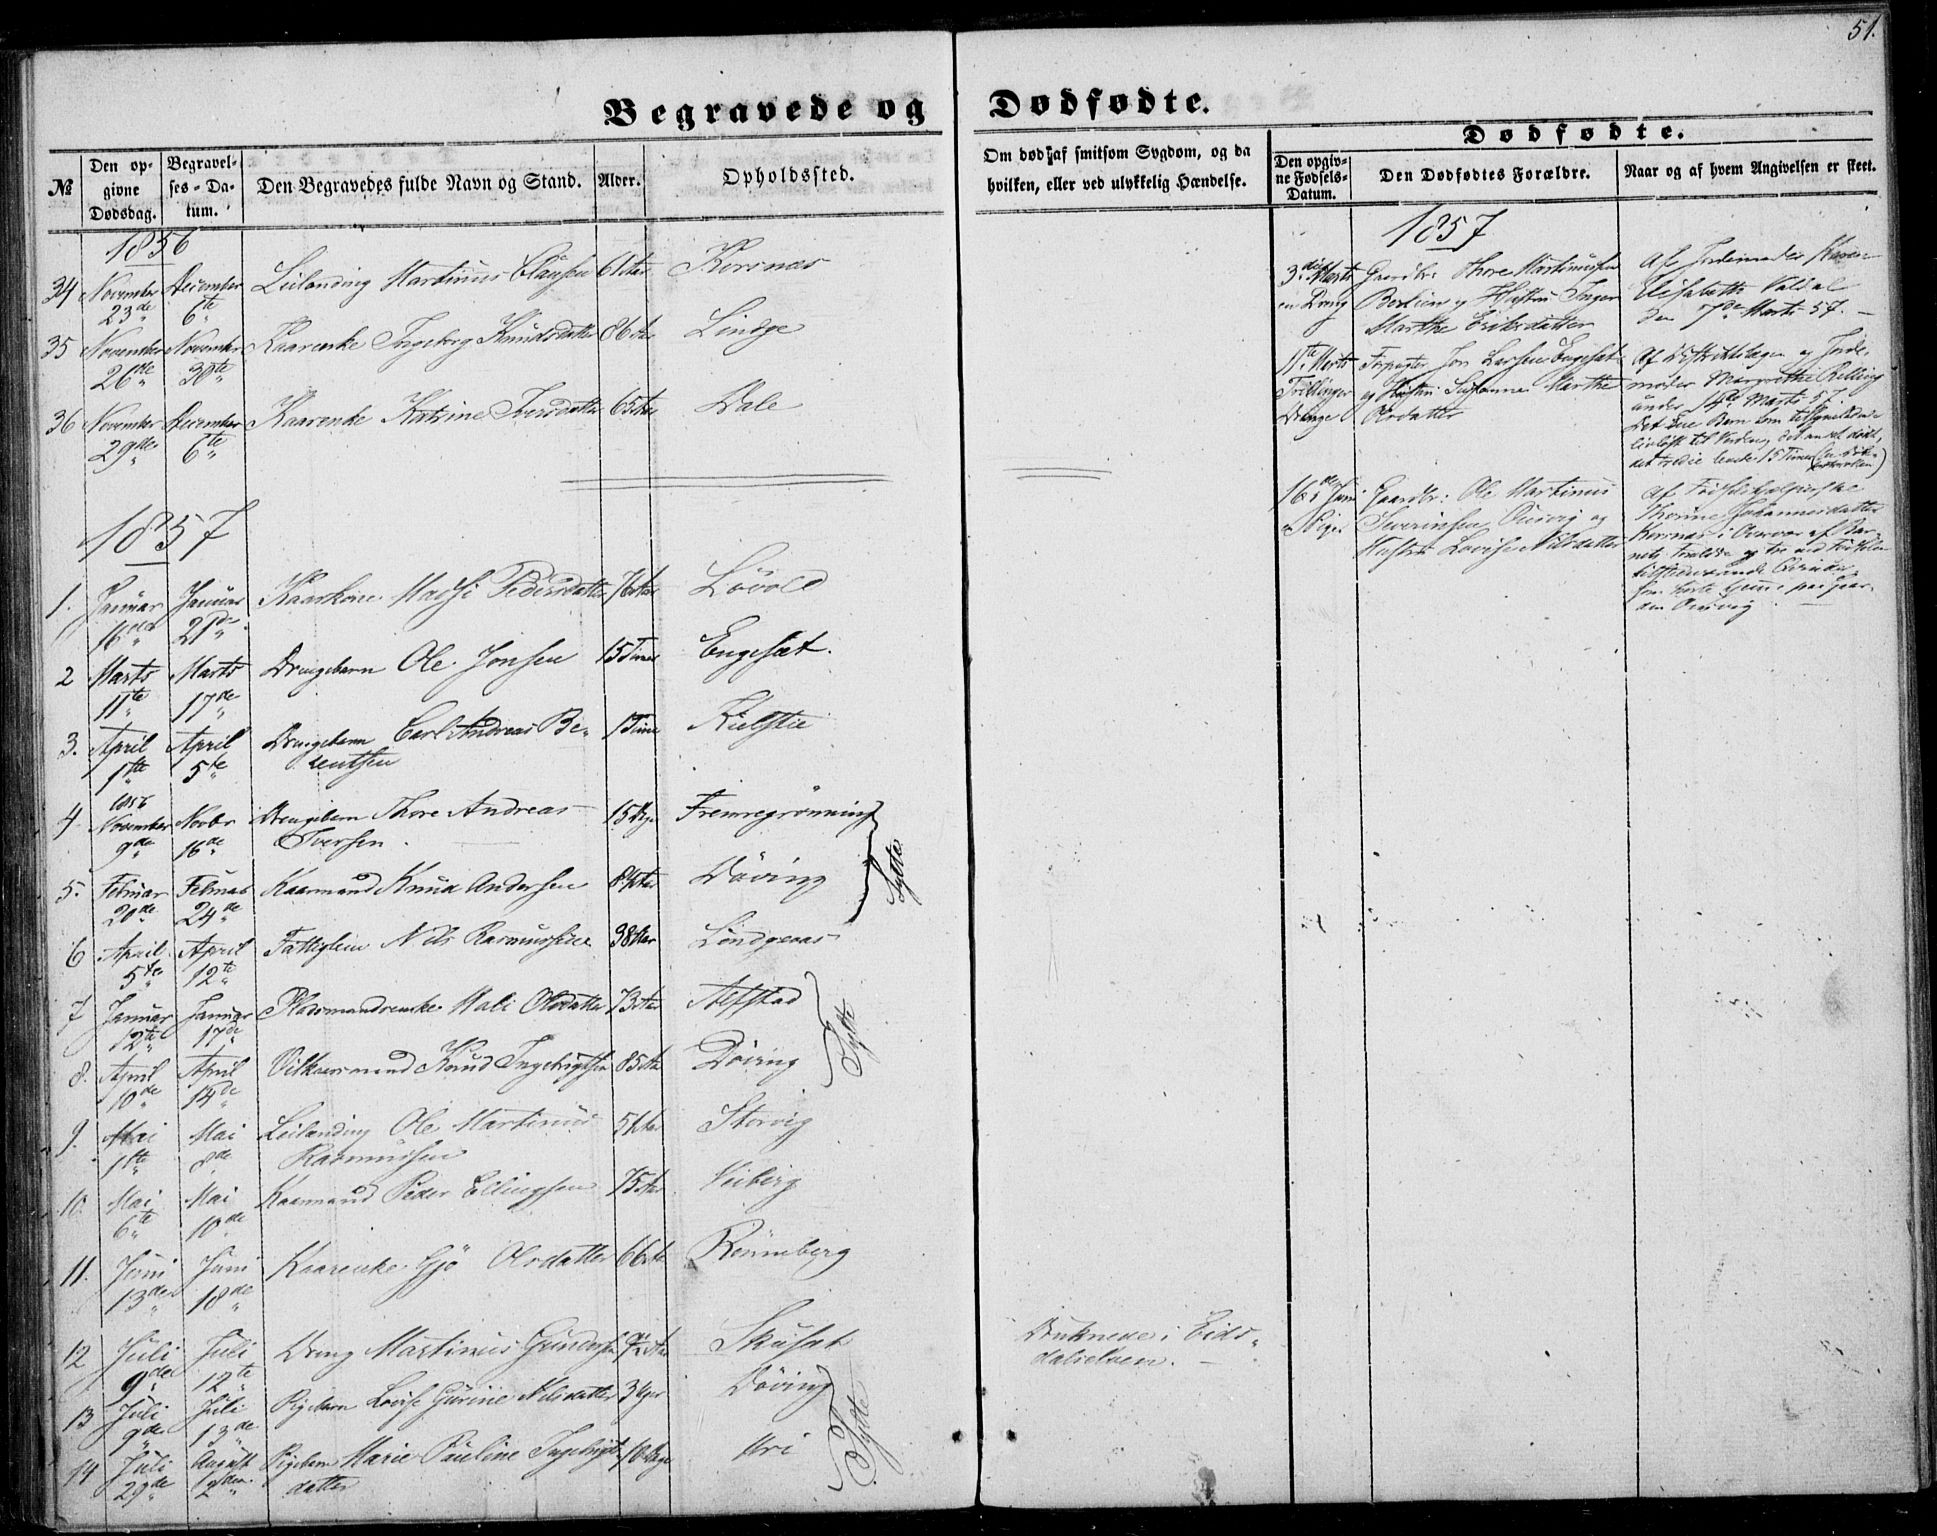 51.
Begravede og Dødfødte.
№
Den opgivne Dødsdag.
Begravelses-Datum.
Den Begravedes fulde Navn og Stand.
Alder.
Opholdssted.
Om død af smitsom Sygdom, og da hvilken, eller ved ulykkelig Hændelse.
Dødfødte.
Den opgivne Fødsels-Datum.
Den Dødfødtes Forældre.
Naar og af hvem Angivelsen er skeet.
1856
34 November 23de December 6te Leilending Martinus Clausen 61 Aar Korsnæs
35 November 26de November 30te Kaarenke Ingeborg Knudsdatter 86 Aar Lindge
36 November 29de December 6te Kaarenke Katrine Iversdatter 65 Aar Dale
1857
1. Januar 16de Januar 21de Kaarkone Madsi Pedersdatter 76 Aar Løvold
2 Marts 11te Marts 17de Drengebarn Ole Jonsen 15 Timer Engesæt.
3. April 1ste April 5te Drengebarn Carl Andreas Berentsen 1 Time
4 1856 November 9de Novbr 16de Drengebarn Thore Andreas Iversen 15 Dage Fremregrønning
5. Februar 20de Februar 24de Kaarmand Knud Andersen 84 Aar Døving
Sylte
6 April 5te April 12te Fattiglem Nils Rasmussen 38 Aar
7 Januar 12te Januar 17de Pladsmandsenke Mali Olsdatter 73 Aar Alfstad
8. April 10de April 14de Vilkaarsmand Knud Ingebrigtsen 85 Aar Døving
Sylte
9. Mai 1ste Mai 8de Leilending Ole Martinus Rasmussen Storvig
10. Mai 6te Mai 10de Kaarmand Peder Ellingsen 75 Aar Veiberg
11. Juni 13de Juni 18de Kaarenke Gjø Olsdatter 66 Aar Rønneberg
12 Juli 9de Juli 12te Dreng Martinus Gundersen Skusæt Druknede i Eidsdalselven.
13 Juli 9de Juli 13de Pigebarn Lovise Gurine Nilsdatter 3 Uger Døving
14 Juli 29de August 2den Pigebarn Marie Pauline Ingebrigtsdatter 10 Dage Uri
Sylte
1857
3die Marts en Dreng Gaardbr. Thore Martinussen og Hustru Inger Marthe Eriksdatter
Af Jordemoder Karen Elisabeth Valdal den 7de Marts 57.
11te Marts Trillinger Drenge Forpagter Jon Larsen Engesæt og Hustru Susanne Marthe Olsdatter
Af Distriktslægen og Jordemoder Margrethe Relling under 14de Marts 57. Det ene Barn kom livløst til Verden, det andet dødt, det tredie levede 15 Timer
16de Juni en Pige. Gaardbr: Ole Martinus Severinsen Ourvig og Hustru Lovise Nilsdatter
Af Fødselshjelperske Thorine Johannesdatter Korsnæs i Overvær af Barnets Forældre og tre ved Fødselen tilstedeværende paa Gaarden Ourvig.